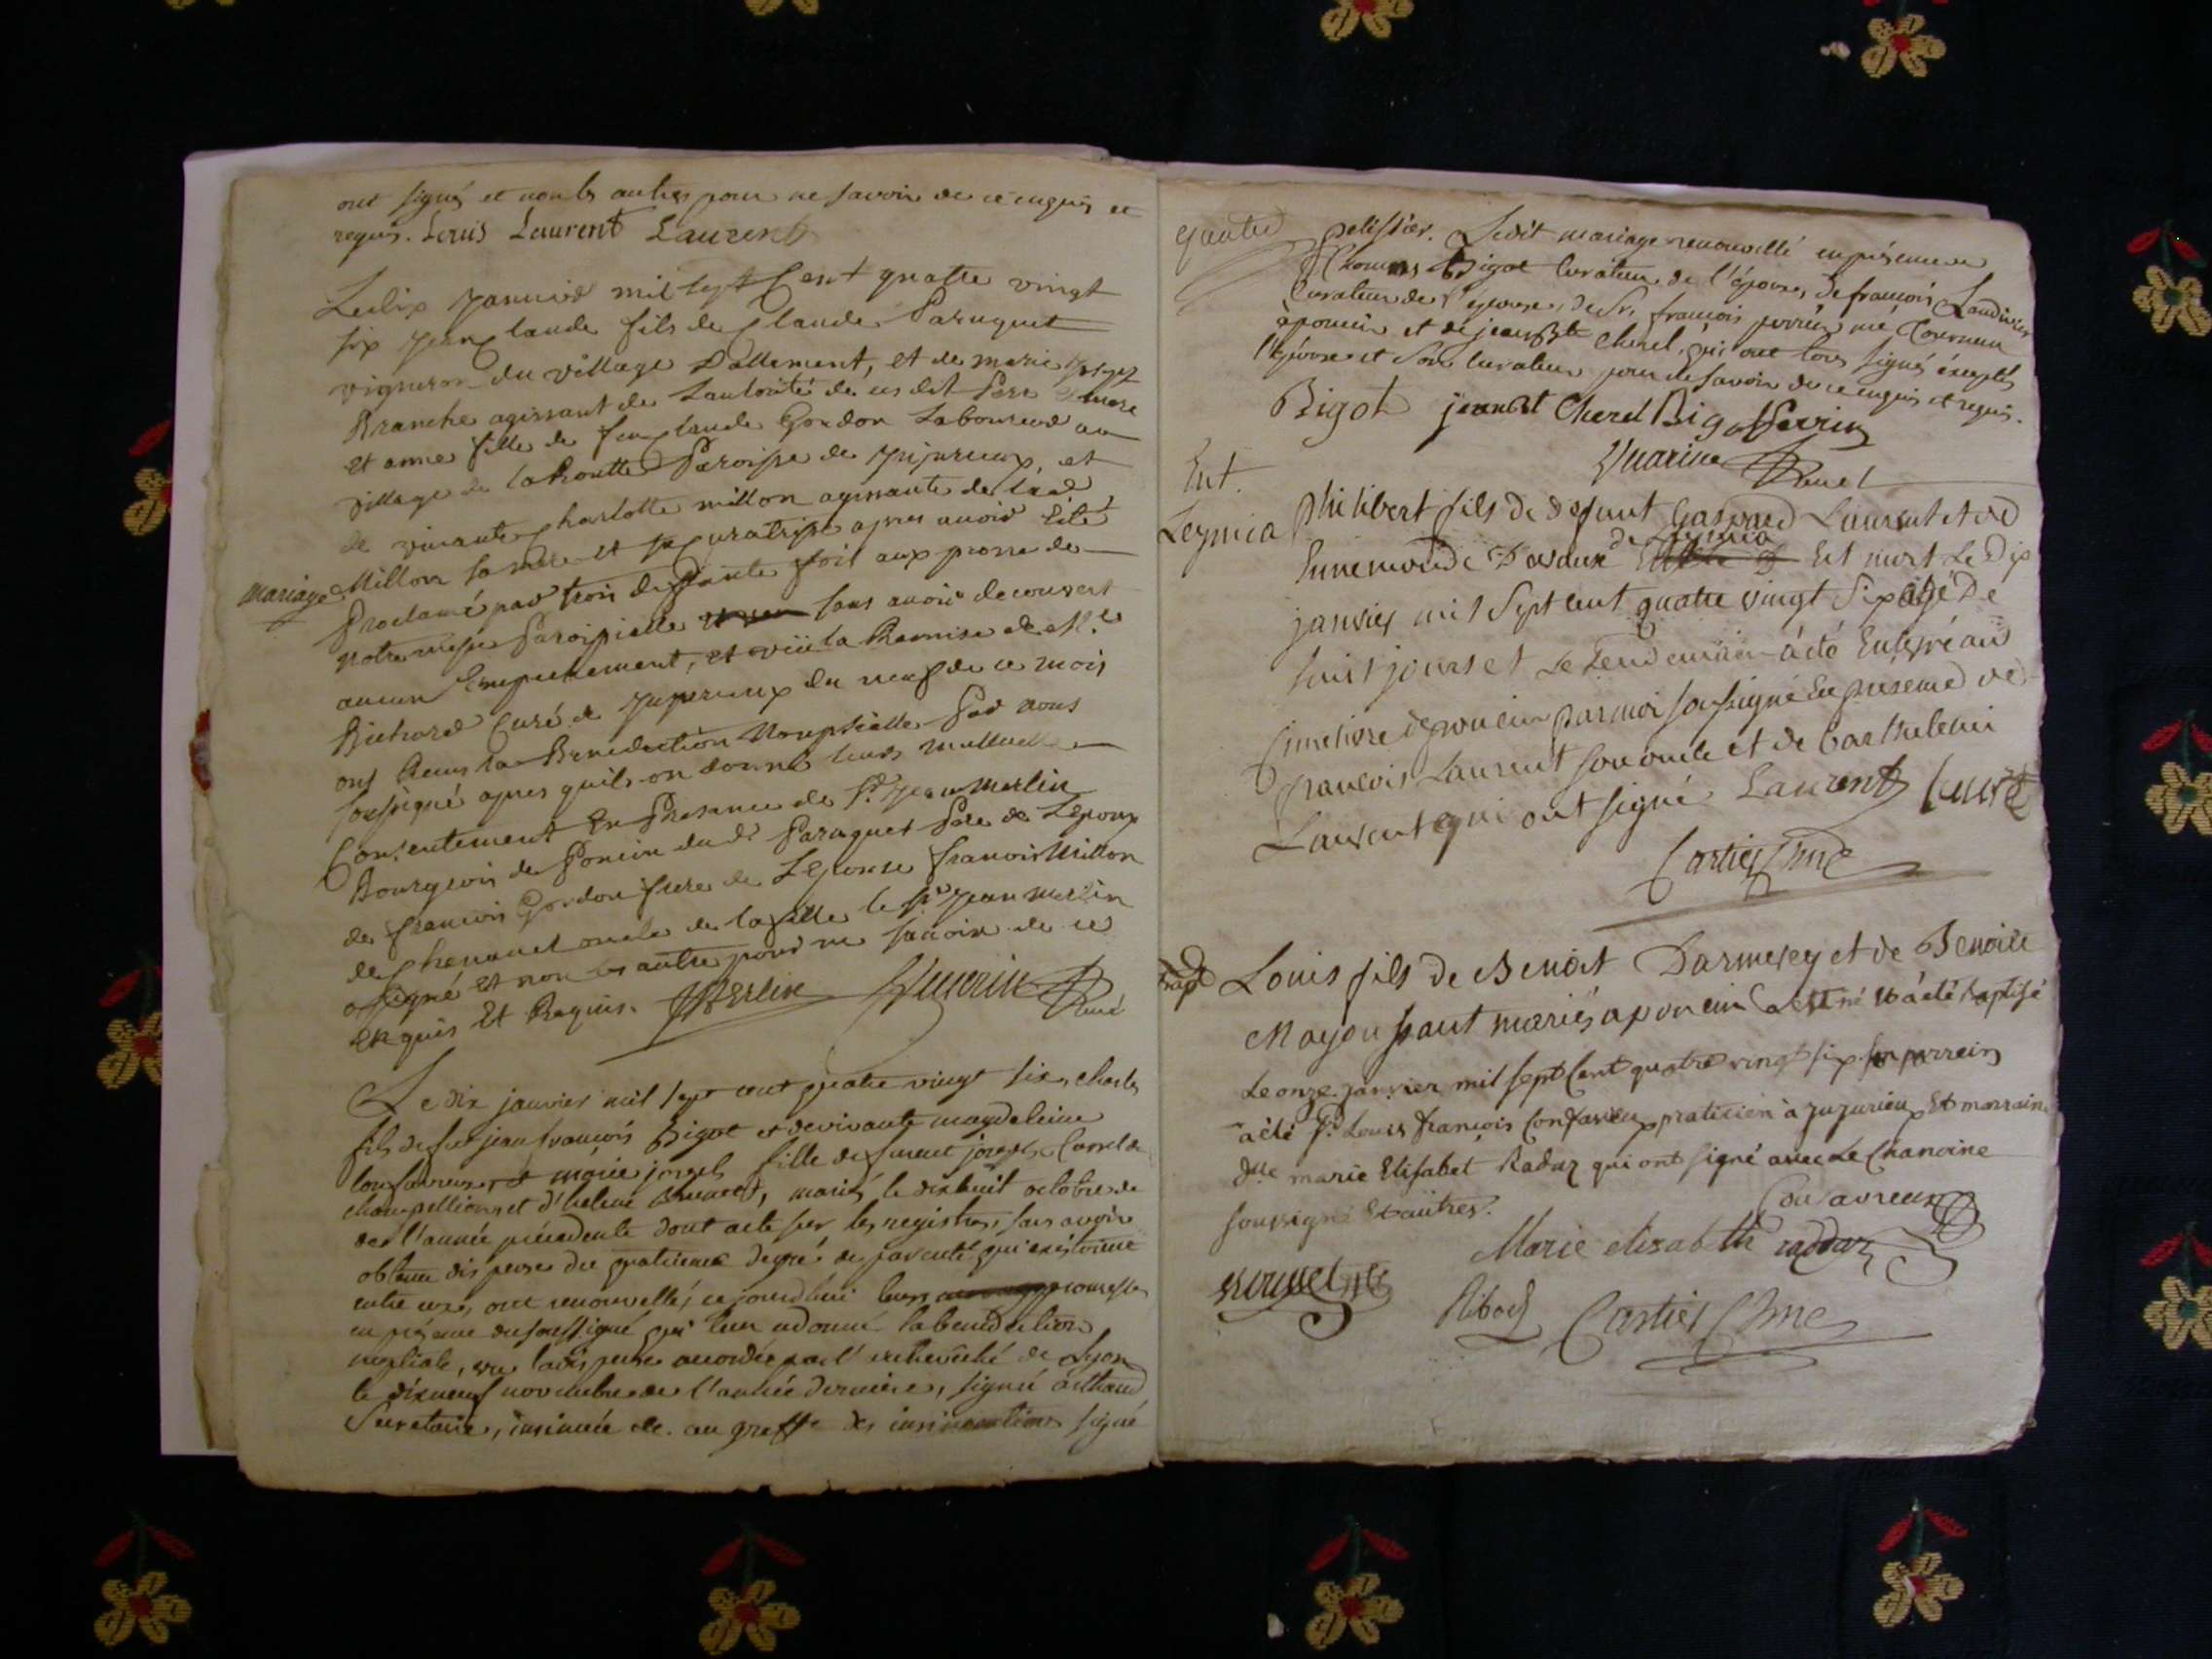 ont signés et non les autres pour ne savoir de ce enquis et
requis. Louis Laurent Laurent
Le dix Janvier mil sept Cent quatre vingt
six Jean Claude fils de Claude Paruquet
vigneron du village Dallement, et de marie
Branche agissant de Lautorité de ces dit Pere & mere
et anne fille de feu Claude Gordon Laboureur au
village de la Route Paroisse de Jujurieux, et
de vivante Charlotte millon agissante de lad
mariage Millon sa mere et sa Curatrisse apres avoir Eté
Proclamé par trois diffairante fois aux prosne de
notre messe Paroissielle sans avoir decouvert
aucun Empechement, et vüe la Remise de Mr
Richard Curé de Jujurieux du neuf de ce mois
ont Reçus la Benediction Nouptialle Par nous
soussigné apres quils on donné leurs mutuelle
Consentement En Presance de Sr Jean Merlin
Bourgeois de Poncin dud Paruquet Pere de Lepoux
de francois Gordon frere de Lepouse francois Millon
de Chenavel oncle de la fille le Sr Jean Merlin
a signé et non les autre pour ne scavoir de ce
Enquis Et Requis. Merlin Guerin Curé
Le dix janvier mil sept cent quatre vingt six, charles
fils de feu jean françois Bigot et de vivante magdeleine
confavreux, et marie joseph fille de funct joseph Carrel de
champellion, et d'heleine, mariés le dix huit octobre de
de l'année précédente dont acte sur les registres, sans avoir
obtenu dispense du quatrieme degré de parenté qui existoient
entre eux, ont renouvellés ce jourdhui leurs promesses
en présence du soussigné qui leur a donné la benediction
nuptiale, vu la dispense accordée par l'archevêché de Lyon
le dix neuf novembre de l'année derniere, signé arthaud
Secretaire, insinuée etc. au greffe des insinuations signé
pelissier. Ledit mariage renouvellé en présence de
Thomas Bigot curateur de l'épouse, de françois Landivier
curateur de l'épouse, de Sr. françois perrier
a poncin et de jean Bte Cherel, qui ont tous signés éxeptés
l'épouse et son curateur pour ne savoir de ce enquis et requis.
Bigot jean Bt Cherel Bigot Perrin
Guerin Curé
Ent.
Leymia Philibert fils de defunt Gaspard Laurent et de
de Leymia
Ennemonde Desvaux Est mort Le Dix
janvier mil sept cent quatre vingt six agé De
huit jours et Le Lendemain a été Enterré au
Cimetiere de poncin par moi soussigné En présence de
françois Laurent son oncle et de Barthelemi
Laurent qui ont signé Laurent Laurent
Cartier Chne
Bapt Louis fils de Benoit Darmesey et de Benoite
Mayoussaut mariés a poncin est né et a été baptisé
Le onze janvier mil sept cent quatre vingt six son parrein
a été Sr. Louis François Confavreux praticien à Jujurieux Et marraine
Dlle marie Elisabet Radaz qui ont signé avec Le Chanoine
soussigné Et autres. Confavreux
Marie elisabeth raddaz
Riboud Cartier Chne